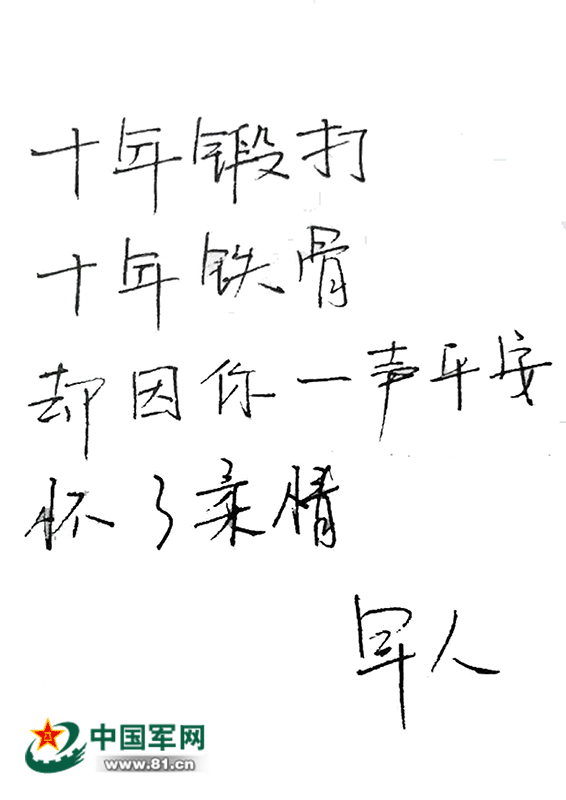 十年锻打
十年铁骨
却因你一声平安
怀了柔情
军人
中国军网
www.81.cn